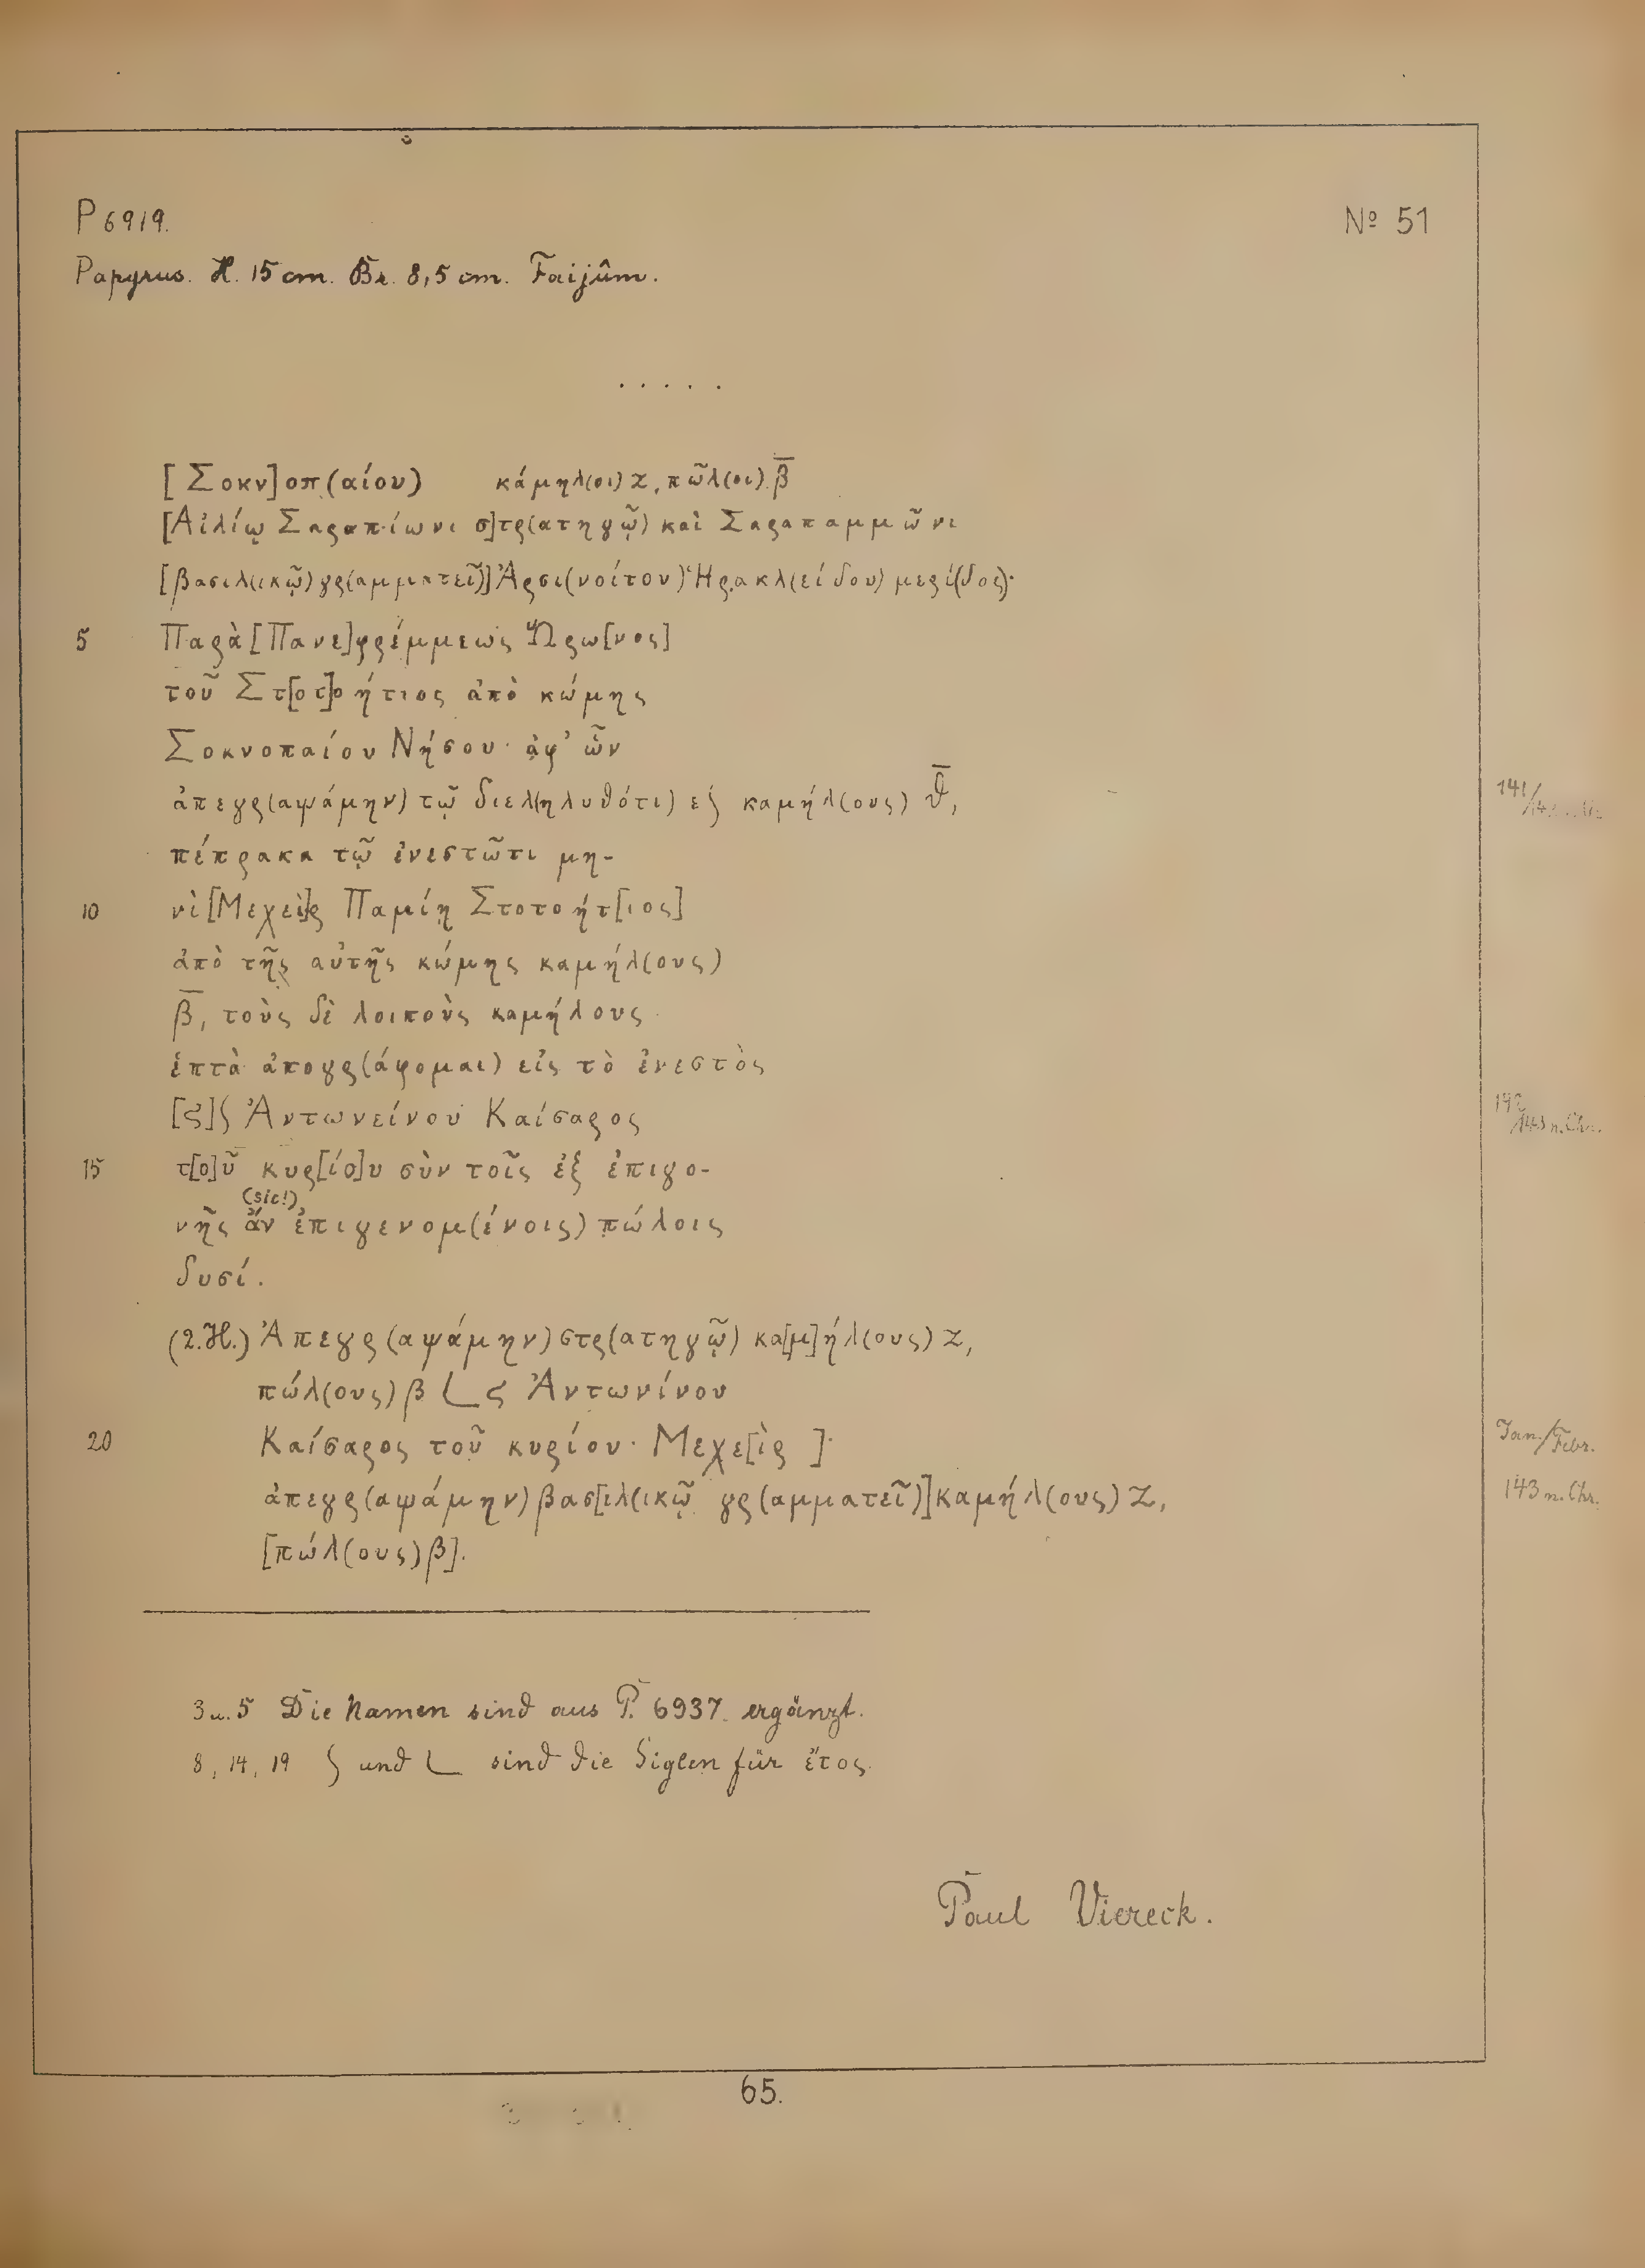 P 6919. № 51
Papyrus. H. 15 cm. Br. 8,5 cm. Faijûm.
. . . . .
[Σοκν]οπ(αίου) κάμηλ(οι) ζ, πῶλ(οι) β̅
[Αἰλίῳ Σαραπίωνι σ]τρ(ατηγῷ) καὶ Σαραπαμμῶνι
[βασιλ(ικῷ) γρ(αμματεῖ)] Ἀρσι(νοίτου) Ἡρακλ(είδου) μερί(δος)·
5 Παρὰ [Πανε]φρέμμεως Ὥρω[νος]
τοῦ Στ[οτ]οήτιος ἀπὸ κώμης
Σοκνοπαίου Νήσου· ἀφ' ὧν
ἀπεγρ(αψάμην) τῷ διελ(ηλυθότι) ε ʃ καμήλ(ους) θ̅, 141/
πέπρακα τῷ ἐνεστῶτι μη-
10 νὶ [Μεχεὶ]ρ Παμίῃ Στοτοήτ[ιος]
ἀπὸ τῆς αὐτῆς κώμης καμήλ(ους)
β̅, τοὺς δὲ λοιποὺς καμήλους
ἑπτὰ ἀπογρ(άφομαι) εἰς τὸ ἐνεστὸς
[ϛ] ʃ Ἀντωνείνου Καίσαρος 142/143 n. Chr.
15 τ[ο]ῦ κυρ[ίο]υ σὺν τοῖς ἐξ ἐπιγο-
(sic!)
νῆς ἄν ἐπιγενομ(ένοις) πώλοις
δυσί.
(2. H.) Ἀπεγρ(αψάμην) στρ(ατηγῷ) κα[μ]ήλ(ους) ζ,
πώλ(ους) β L ϛ Ἀντωνίνου
20 Καίσαρος τοῦ κυρίου· Μεχε[ὶρ ]· Jan./Febr.
ἀπεγρ(αψάμην) βασ[ιλ(ικῷ) γρ(αμματεῖ)] καμήλ(ους) ζ, 143 n. Chr.
[πώλ(ους) β].
3 u. 5 Die Namen sind aus P. 6937 ergänzt.
8, 14, 19 ʃ und L sind die Siglen für ἔτος.
Paul Viereck.
65.